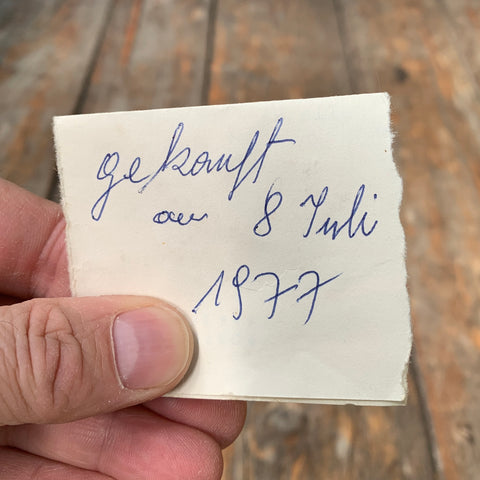 gekauft
am 8 Juli
1977